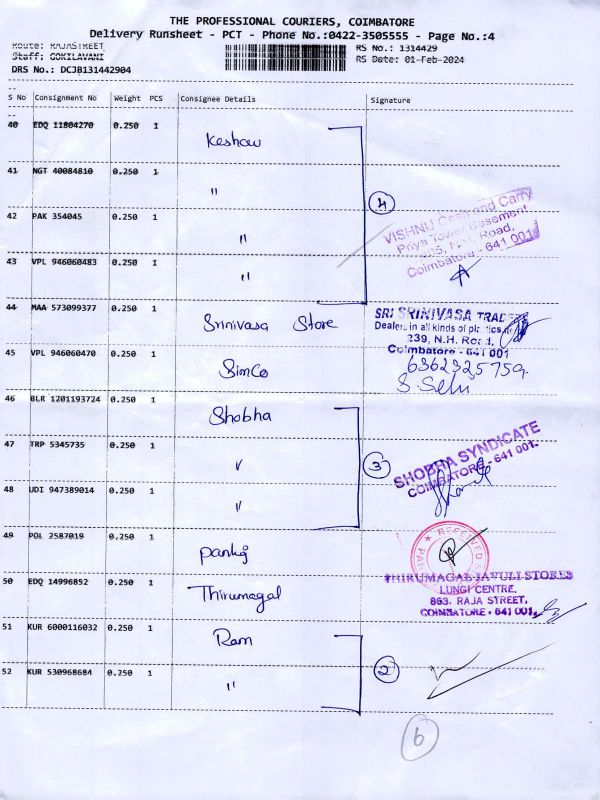 THE PROFESSIONAL COURIERS, COIMBATORE
Delivery Runsheet - PCT - Phone No.:0422-3505555 - Page No.:4
Route: RAJASTREET
RS No.: 1314429
Staff: GOKILAVANI
RS Date: 01-Feb-2024
DRS No.: DCJB131442904
S No Consignment No Weight PCS Consignee Details Signature
40 EDQ 11804270 0.250 1
Keshav
41 NGT 40084810 0.250 1
"
4
42 PAK 354045 0.250 1
"
VISHNU Cash and Carry
Priya Tower Basement
N.H. Road,
Coimbatore - 641 001
43 VPL 946060483 0.250 1
"
44 MAA 573099377 0.250 1
Srinivasa Store
SRI SRINIVASA TRADERS
Dealers in all kinds of plastics
239, N.H. Road,
Coimbatore - 641 001
45 VPL 946060470 0.250 1
Simco
6362325759
S. Selu
46 BLR 1201193724 0.250 1
Shobha
47 TRP 5345735 0.250 1
"
3
SHOBHA SYNDICATE
COIMBATORE - 641 001.
48 UDI 947389014 0.250 1
"
49 POL 2587019 0.250 1
Pankj
RECEIVED
50 EDQ 14996852 0.250 1
Thirumagal
THIRUMAGAL JAVULI STORES
LUNGI CENTRE,
863, RAJA STREET,
COIMBATORE - 641 001.
51 KUR 6000116032 0.250 1
Ram
52 KUR 530968684 0.250 1
"
2
6